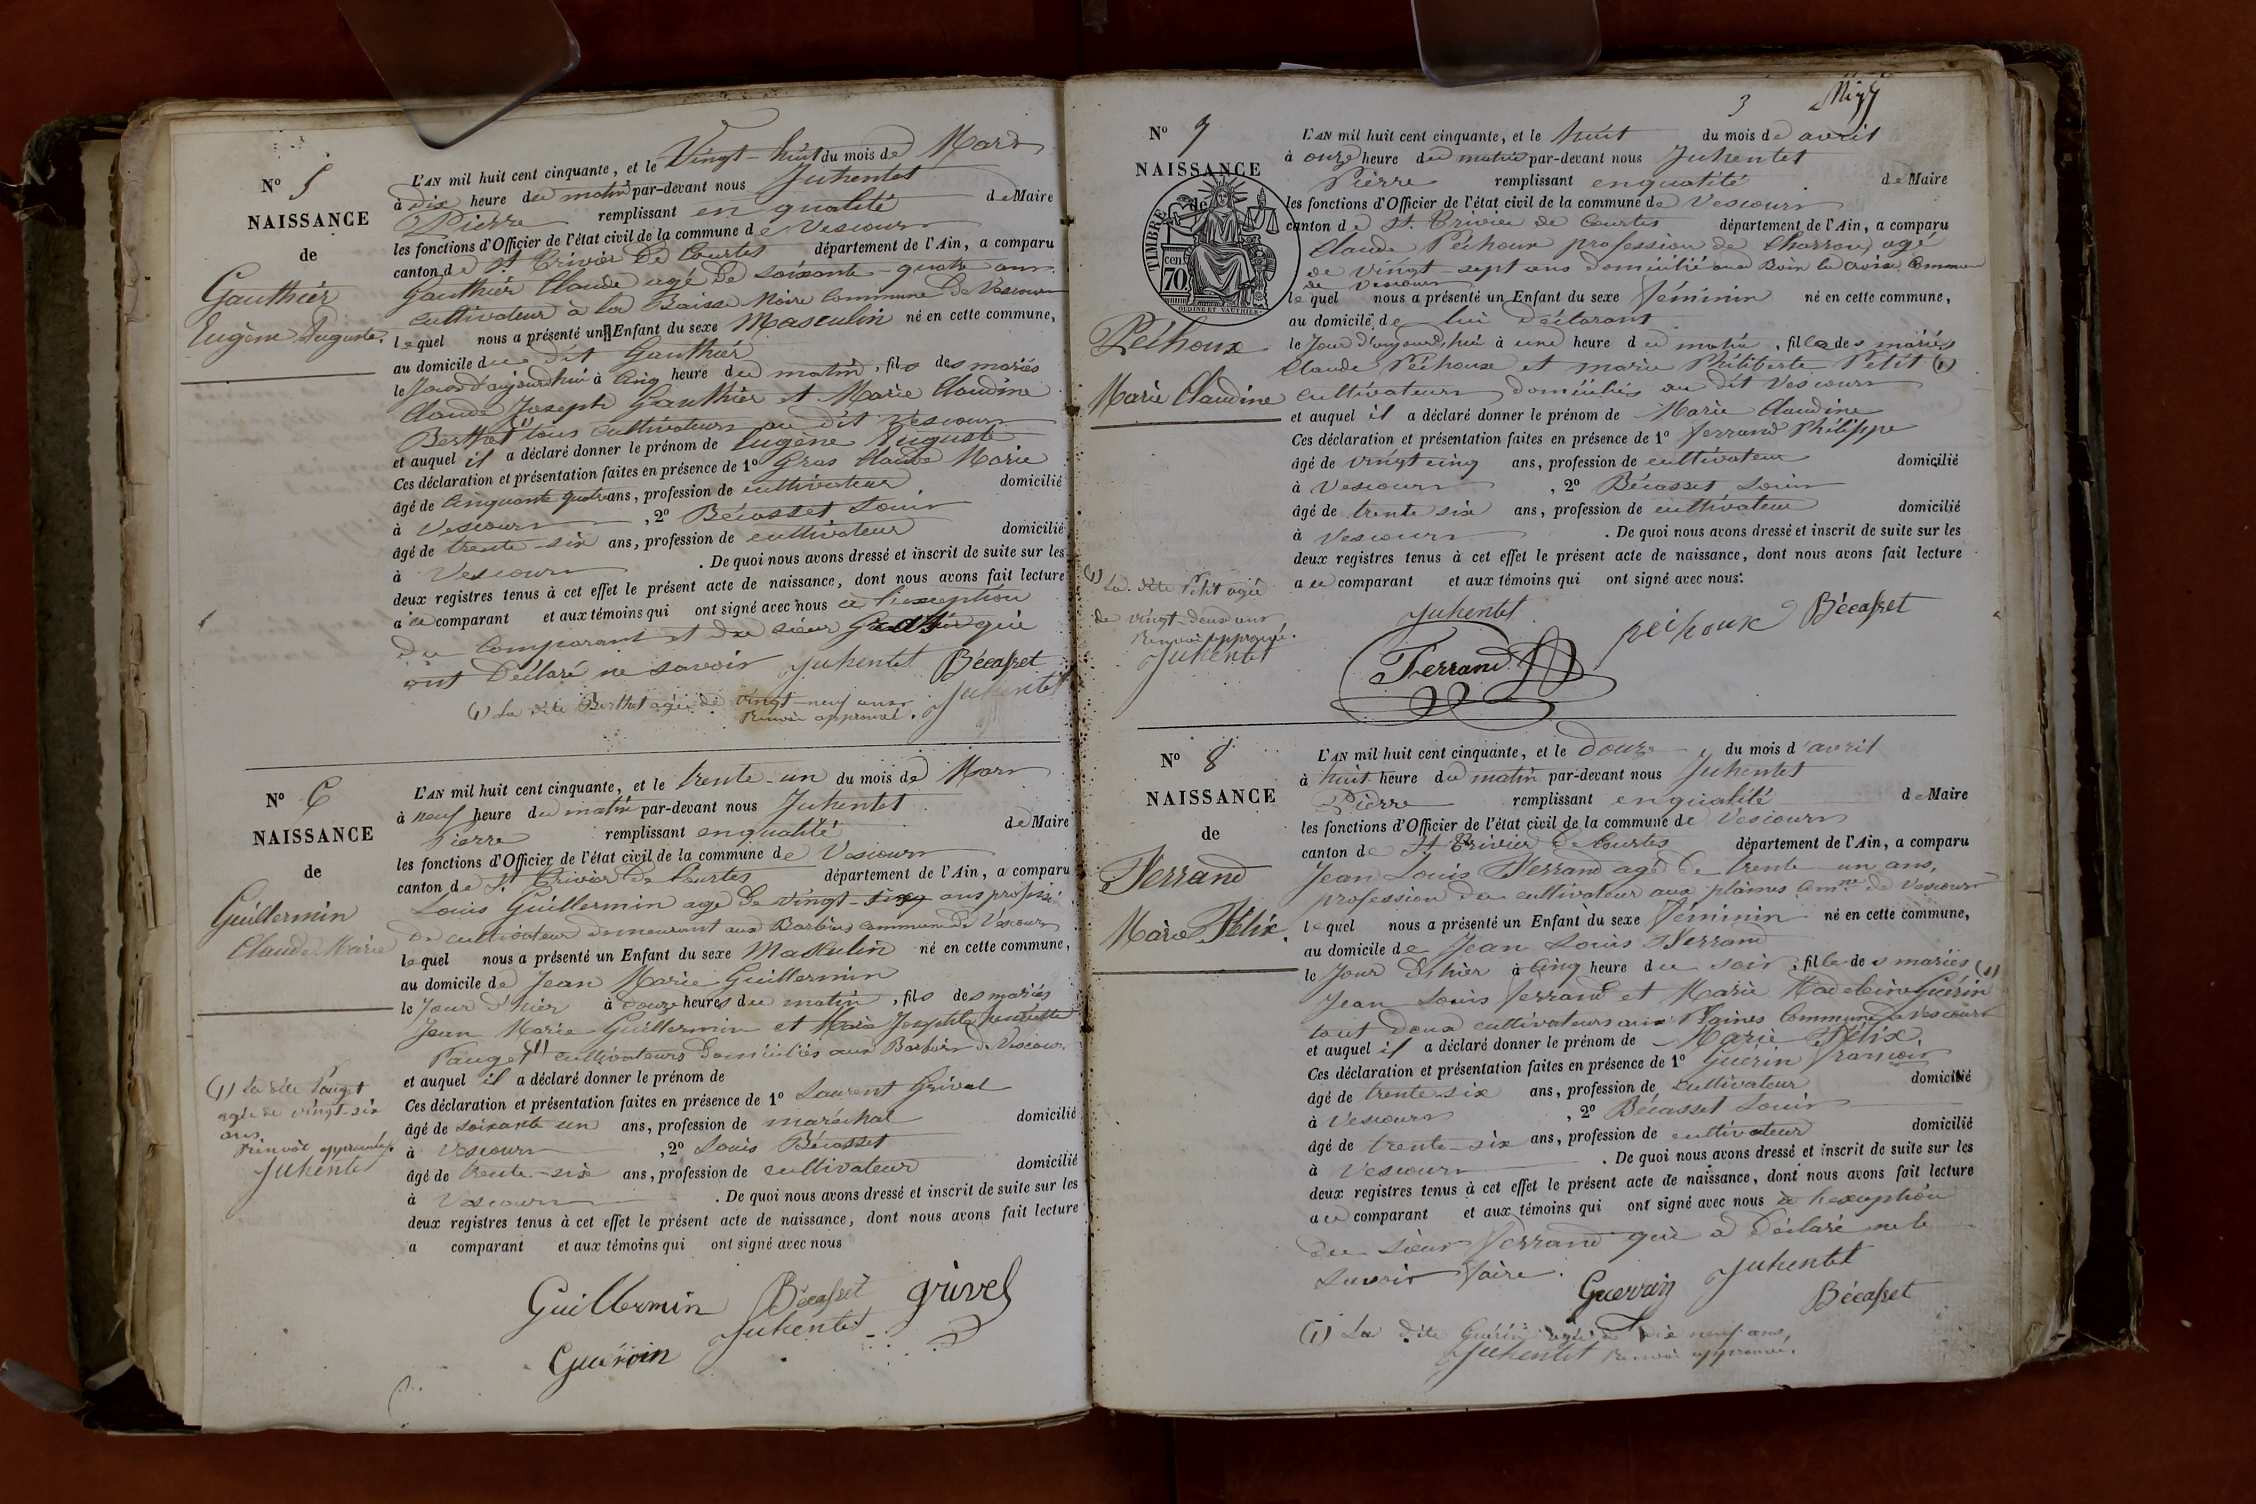 N° 5
NAISSANCE
de
Gauthier
Eugène Auguste.
L'AN mil huit cent cinquante, et le Vingt-huit du mois de Mars
à dix heure du matin par-devant nous Juhentet
Pierre remplissant en qualité de Maire
les fonctions d'Officier de l'état civil de la commune de Vescours
canton de St Trivier De Courtes département de l'Ain, a comparu
Gauthier Claude agé De soixante-quatre ans
cultivateur à la Baisse Noire Commune De Vescours
lequel nous a présenté un Enfant du sexe Masculin né en cette commune,
au domicile du dit Gauthier
le Jour d'aujourdhui à Cinq heure du matin, fils des mariés
Claude Joseph Gauthier et Marie Claudine
Berthet (1) tous cultivateurs au dit Vescours
et auquel il a déclaré donner le prénom de Eugène Auguste
Ces déclaration et présentation faites en présence de 1° Gras Claude Marie
âgé de Cinquante quatre ans, profession de cultivateur domicilié
à Vescours, 2° Bécasset Louis
âgé de trente-six ans, profession de cultivateur domicilié
à Vescours. De quoi nous avons dressé et inscrit de suite sur les
deux registres tenus à cet effet le présent acte de naissance, dont nous avons fait lecture
a ce comparant et aux témoins qui ont signé avec nous à l'exception
du Comparant et du sieur Gras qui
ont Déclaré ne savoir Juhentet Bécasset
(1) La dite Berthet agée de vingt-neuf ans
Renvoi approuvé. Juhentet
N° 6
NAISSANCE
de
Guillermin
Claude Marie
L'AN mil huit cent cinquante, et le trente-un du mois de Mars
à neuf heure du matin par-devant nous Juhentet
Pierre remplissant en qualité de Maire
les fonctions d'Officier de l'état civil de la commune de Vescours
canton de St Trivier De Courtes département de l'Ain, a comparu
Louis Guillermin agé De vingt- ans professi
De cultivateur demeurant aux Barbins commune De Vescours
lequel nous a présenté un Enfant du sexe Masculin né en cette commune,
au domicile de Jean Marie Guillermin
le Jour d'hier à douze heures du matin, fils des mariés
Jean Marie Guillermin et Marie Josephte Henriette
Pauget (1) cultivateurs Domiciliés aux Barbins De Vescours
et auquel il a déclaré donner le prénom de
Ces déclaration et présentation faites en présence de 1° Laurent Grivel
âgé de soixante un ans, profession de maréchal domicilié
à Vescours, 2° Louis Bécasset
âgé de trente-six ans, profession de cultivateur domicilié
à Vescours. De quoi nous avons dressé et inscrit de suite sur les
deux registres tenus à cet effet le présent acte de naissance, dont nous avons fait lecture
a comparant et aux témoins qui ont signé avec nous
(1) La dite Pauget
agée de vingt-six
ans
Renvoi approuvé.
Juhentet
Guillermin Bécasset grivel
Juhentet
Guerrin
3
N° 7
NAISSANCE
de
TIMBRE
70 cen
OUDINE ET VAUTHIER
Péchoux
Marie Claudine
L'AN mil huit cent cinquante, et le huit du mois de avril
à onze heure du matin par-devant nous Juhentet
Pierre remplissant en qualité de Maire
les fonctions d'Officier de l'état civil de la commune de Vescours
canton de St. Trivier de Courtes département de l'Ain, a comparu
Claude Péchoux profession de Charron agé
de vingt-sept ans domicilié au Bois la croix Commune
de Vescours
lequel nous a présenté un Enfant du sexe féminin né en cette commune,
au domicile de lui déclarant
le Jour d'aujourdhui à une heure du matin, fille des mariés
Claude Péchoux et marie Philiberte Petit (1)
cultivateurs domiciliés au dit Vescours
et auquel il a déclaré donner le prénom de Marie Claudine
Ces déclaration et présentation faites en présence de 1° Ferrand Philippe
âgé de vingt cinq ans, profession de cultivateur domicilié
à Vescours, 2° Bécasset Louis
âgé de trente six ans, profession de cultivateur domicilié
à Vescours. De quoi nous avons dressé et inscrit de suite sur les
deux registres tenus à cet effet le présent acte de naissance, dont nous avons fait lecture
a ce comparant et aux témoins qui ont signé avec nous.
(1) La dite Petit agée
de vingt-deux ans
Renvoi approuvé.
Juhentet
Juhentet peihoux Bécasset
Ferrand
N° 8
NAISSANCE
de
Ferrand
Marie Félix.
L'AN mil huit cent cinquante, et le douze du mois d'avril
à huit heure du matin par-devant nous Juhentet
Pierre remplissant en qualité de Maire
les fonctions d'Officier de l'état civil de la commune de Vescours
canton de St Trivier De Courtes département de l'Ain, a comparu
Jean Louis Ferrand agé De trente un ans,
profession de cultivateur aux plaines Comne de Vescours
lequel nous a présenté un Enfant du sexe féminin né en cette commune,
au domicile de Jean Louis Ferrand
le Jour d'hier à Cinq heure du soir, fille des mariés (1)
Jean Louis Ferrand et Marie Madeleine Guérin
tout deux cultivateurs aux Plaines Commune De Vescours
et auquel il a déclaré donner le prénom de Marie Félix.
Ces déclaration et présentation faites en présence de 1° Guerin François
âgé de trente-six ans, profession de cultivateur domicilié
à Vescours, 2° Bécasset Louis
âgé de trente-six ans, profession de cultivateur domicilié
à Vescours. De quoi nous avons dressé et inscrit de suite sur les
deux registres tenus à cet effet le présent acte de naissance, dont nous avons fait lecture
a ce comparant et aux témoins qui ont signé avec nous à l'exception
du sieur Ferrand qui a Déclaré ne le
savoir faire. Guerrin Juhentet
Bécasset
(1) La dite Guérin agée de Dix neuf ans,
Juhentet Renvoi approuvé.